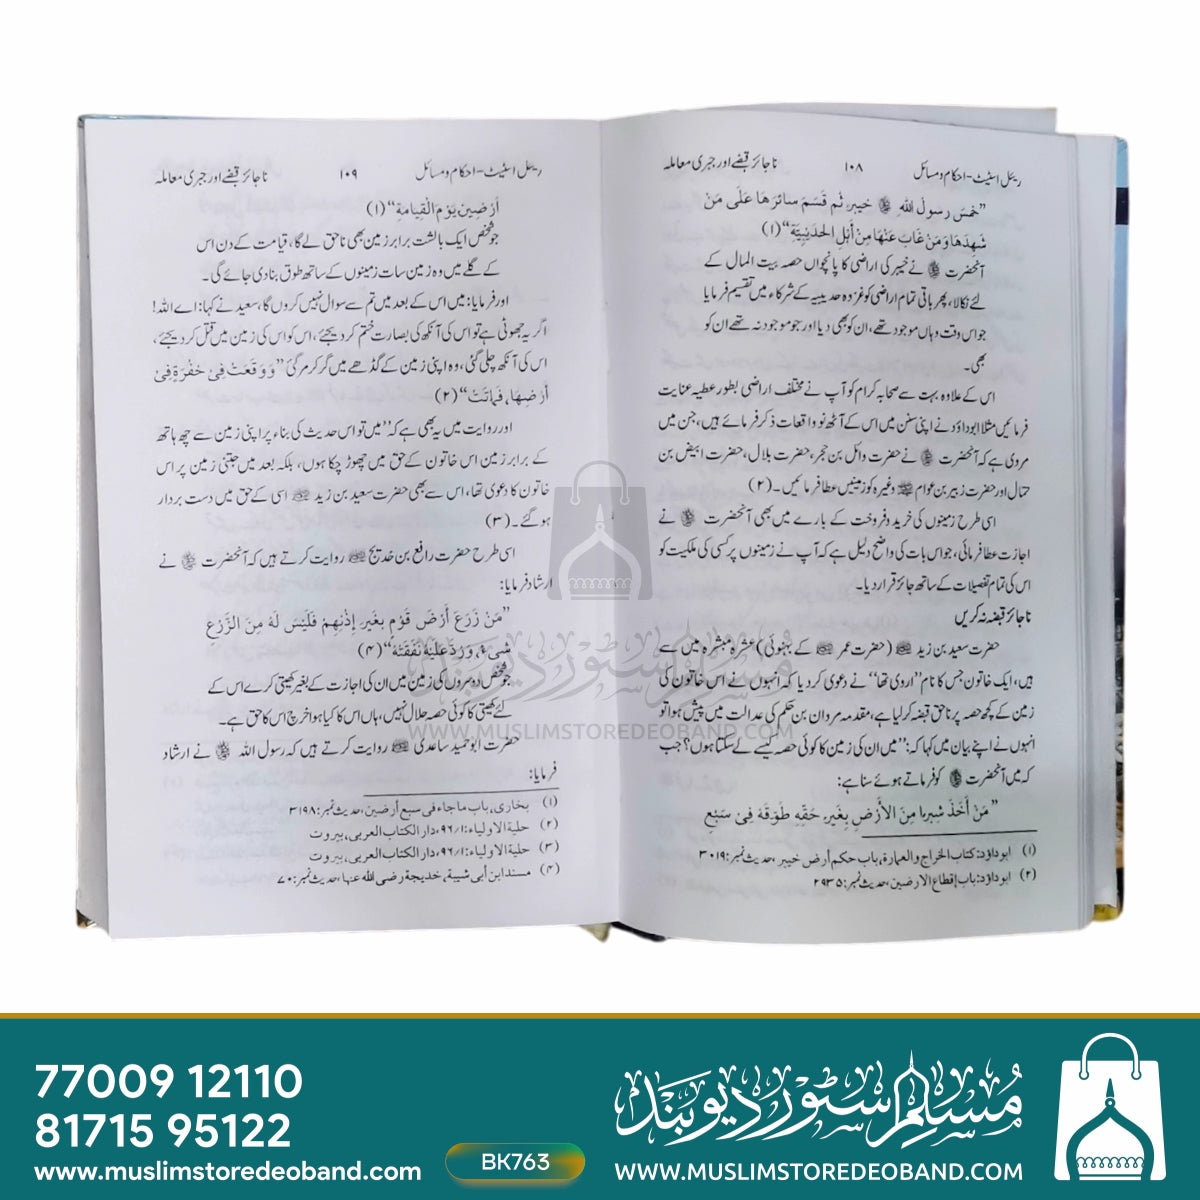 ریئل اسٹیٹ - احکام و مسائل ۱۰۸ ناجائز قبضے اور جبری معاملہ
”خمسَ رسولُ الله ﷺ خيبر، ثم قَسَمَ سائرَها عَلَى مَنْ
شَهِدَهَا وَمَنْ غَابَ عَنْهَا مِنْ أَهْلِ الحُدَيْبِيَّةِ“ (۱)
آنحضرت ﷺ نے خیبر کی اراضی کا پانچواں حصہ بیت المال کے
لئے نکالا، پھر باقی تمام اراضی کو غزوہ حدیبیہ کے شرکاء میں تقسیم فرمایا
جو اس وقت وہاں موجود تھے، ان کو بھی دیا اور جو موجود نہ تھے ان کو
بھی۔
اس کے علاوہ بہت سے صحابہ کرام کو آپ نے مختلف اراضی بطور عطیہ عنایت
فرمائیں مثلا ابوداؤد نے اپنی سنن میں اس کے آٹھ نو واقعات ذکر فرمائے ہیں، جن میں
مروی ہے کہ آنحضرت ﷺ نے حضرت وائل بن حجر، حضرت بلال، حضرت ابیض بن
حمال اور حضرت زبیر بن عوام ﷺ وغیرہ کو زمینیں عطا فرمائیں۔ (۲)
اسی طرح زمینوں کی خرید و فروخت کے بارے میں بھی آنحضرت ﷺ نے
اجازت عطا فرمائی، جو اس بات کی واضح دلیل ہے کہ آپ نے زمینوں پر کسی کی ملکیت کو
اس کی تمام تفصیلات کے ساتھ جائز قرار دیا۔
ناجائز قبضہ نہ کریں
حضرت سعید بن زید ؓ (حضرت عمر ؓ کے بہنوئی) عشرہ مبشرہ میں سے
ہیں، ایک خاتون جس کا نام ”اروی تھا“ نے دعوی کر دیا کہ انہوں نے اس خاتون کی
زمین کے کچھ حصہ پر ناحق قبضہ کر لیا ہے، مقدمہ مروان بن حکم کی عدالت میں پیش ہوا تو
انہوں نے اپنے بیان میں کہا کہ: ”میں ان کی زمین کا کوئی حصہ کیسے لے سکتا ہوں؟ جب
کہ میں آنحضرت ﷺ کو فرماتے ہوئے سنا ہے:
”مَنْ أَخَذَ شِبرا مِنَ الأَرْضِ بِغَيرِ حَقِّهِ طُوِّقَهُ فِيْ سَبْعِ
(۱) ابوداؤد: کتاب الخراج والعمارة، باب حکم أرض خيبر، حدیث نمبر: ۳۰۱۹
(۲) ابوداؤد: باب إقطاع الارضين، حدیث نمبر: ۲۹۳۵
ریئل اسٹیٹ - احکام و مسائل ۱۰۹ ناجائز قبضے اور جبری معاملہ
أَرْضِينَ يَوْمَ الْقِيامةِ“ (۱)
جو شخص ایک بالشت برابر زمین بھی ناحق لے گا، قیامت کے دن اس
کے گلے میں وہ زمین سات زمینوں کے ساتھ طوق بنا دی جائے گی۔
اور فرمایا: میں اس کے بعد میں تم سے سوال نہیں کروں گا، سعید نے کہا: اے اللہ!
اگر یہ جھوٹی ہے تو اس کی آنکھ کی بصارت ختم کر دیجئے، اس کو اس کی زمین میں قتل کر دیجئے،
اس کی آنکھ چلی گئی، وہ اپنی زمین کے گڈھے میں گر کر مر گئی ”وَوَقَعَتْ فِيْ حُفْرَةٍ فِيْ
أَرْضِهَا، فَمَاتَتْ“ (۲)
اور روایت میں یہ بھی ہے کہ ”میں تو اس حدیث کی بناء پر اپنی زمین سے چھ ہاتھ
کے برابر زمین اس خاتون کے حق میں چھوڑ چکا ہوں، بلکہ بعد میں جتنی زمین پر اس
خاتون کا دعوی تھا، اس سے بھی حضرت سعید بن زید ؓ اسی کے حق میں دست بردار
ہو گئے۔ (۳)
اسی طرح حضرت رافع بن خدیج ؓ روایت کرتے ہیں کہ آنحضرت ﷺ نے
ارشاد فرمایا:
”مَنْ زَرَعَ أَرْضَ قَوْمٍ بِغَيرِ إِذْنِهِمْ فَلَيْسَ لَهُ مِنَ الزَّرْعِ
شَيْءٌ، وَرُدَّ عَلَيْهِ نَفَقَتُهُ“ (۴)
جو شخص دوسروں کی زمین میں ان کی اجازت کے بغیر کھیتی کرے اس کے
لئے کھیتی کا کوئی حصہ حلال نہیں، ہاں اس کا کیا ہوا خرچ اس کا حق ہے۔
حضرت ابوحمید ساعدی ؓ روایت کرتے ہیں کہ رسول اللہ ﷺ نے ارشاد
فرمایا:
(۱) بخاری، باب ماجاء فی سبع أرضین، حدیث نمبر: ۳۱۹۸
(۲) حلیة الاولیاء: ۱/۹۶، دار الکتاب العربی، بیروت
(۳) حلیة الاولیاء: ۱/۹۶، دار الکتاب العربی، بیروت
(۴) مسند ابن أبی شیبة، خدیجة رضی الله عنها، حدیث نمبر: ۷۰
مسلم سٹور دیوبند
WWW.MUSLIMSTOREDEOBAND.COM
77009 12110
81715 95122
www.muslimstoredeoband.com
BK763
مسلم سٹور دیوبند
WWW.MUSLIMSTOREDEOBAND.COM